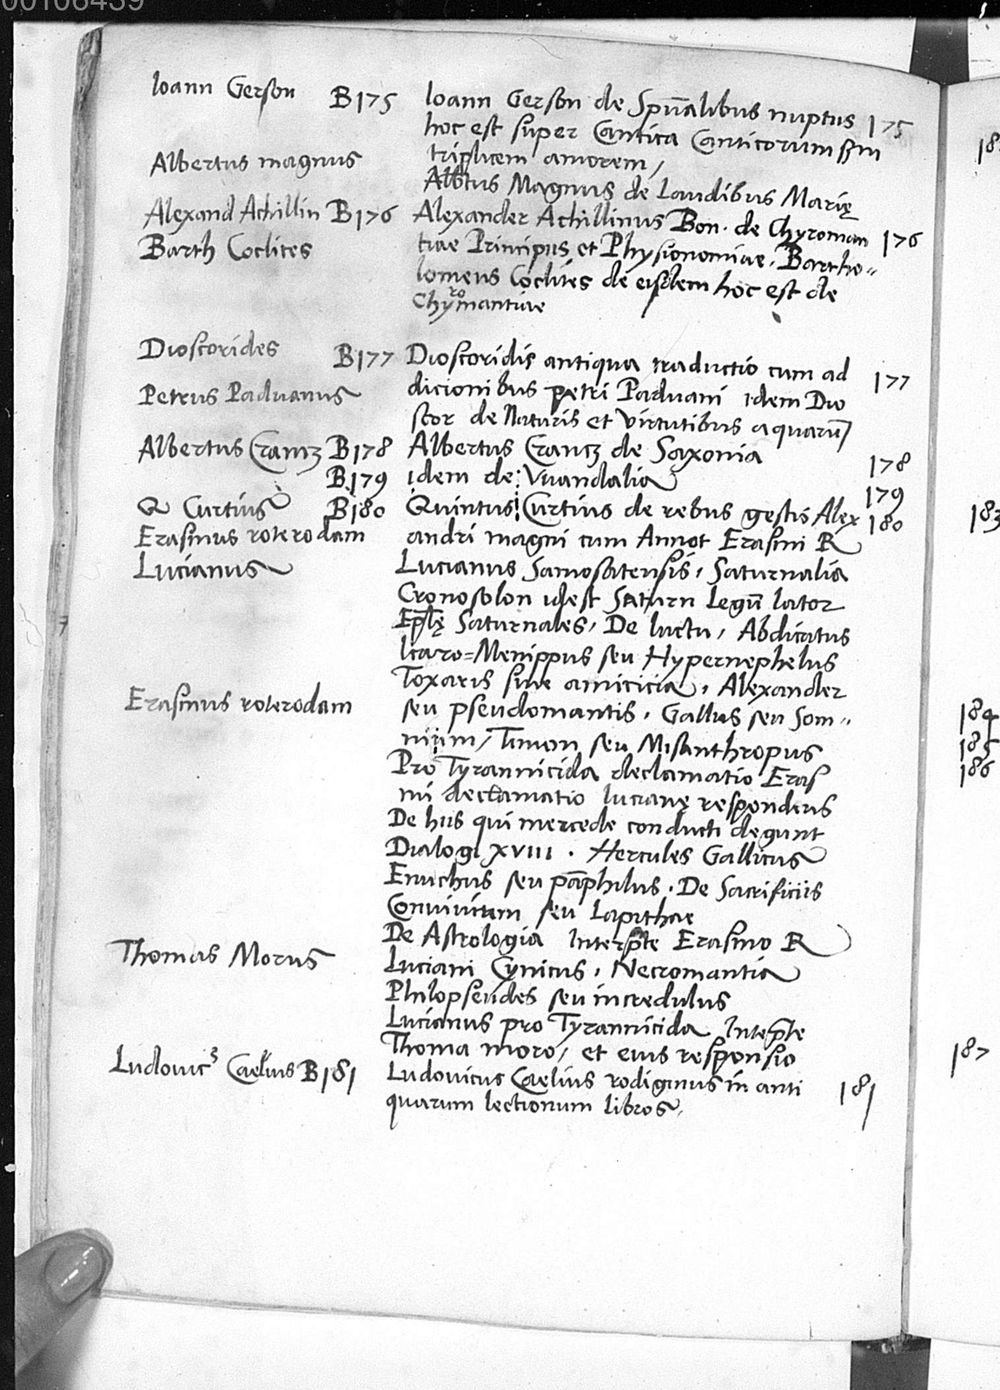 00106439
Ioann Gerson B175 Ioann Gerson de Spūalibus nuptus 175
hoc est super Cantica Canticorum scdm
triplicem amorem/
Albertus magnus Albtus Magnus de Laudibus Marię
Alexand Achillin B176 Alexander Achillinus Bon. de Chyroman 176
Barth Coclites tiae Principus et Physionomiae. Bartho=
lomeus Coclites de eisdem hoc est de
Chyromantiae
Dioscorides B177 Dioscoridis antiqua traductio cum ad 177
Petrus Paduanus dicionibus petri Paduani idem Dio
scor de Naturis et virtutibus aquarū/
Albertus Crantz B178 Albertus Crantz de Saxonia 178
B179 idem de Vuandalia 179
Q Curtius B180 Quintus Curtius de rebus gestis Alex 180
Erasmus roterodam andri magni cum Annot Erasmi R
Lucianus Lucianus Samosatensis, Saturnalia
Cronosolon idest Saturn Legū lator
Epłę Saturnales, De luctu, Abdicatus
Icaro=Menippus seu Hypernephelus
Toxaris siue amicicia, Alexander
Erasmus roterodam seu pseudomantis, Gallus seu Som=
nium/Timon seu Misanthropus
Pro Tyrannicida declamatio Eras
mi declamatio lucianę respondens
De hiis qui mercede conducti degunt
Dialogi XVIII. Hercules Gallicus
Eunchus seu pāphilus. De Sacrificiis
Conuiuium seu Lapithae
De Astrologia Interpte Erasmo R
Thomas Morus Luciani Cynicus, Necromantia
Philopseudes seu incredulus
Lucianus pro Tyrannicida Intepte
Thoma moro/ et eius responsio
Ludouic9 Caelius B181 Ludouicus Caelius rodiginus in anti 181
quarum lectionum libros.
183
184
185
186
187